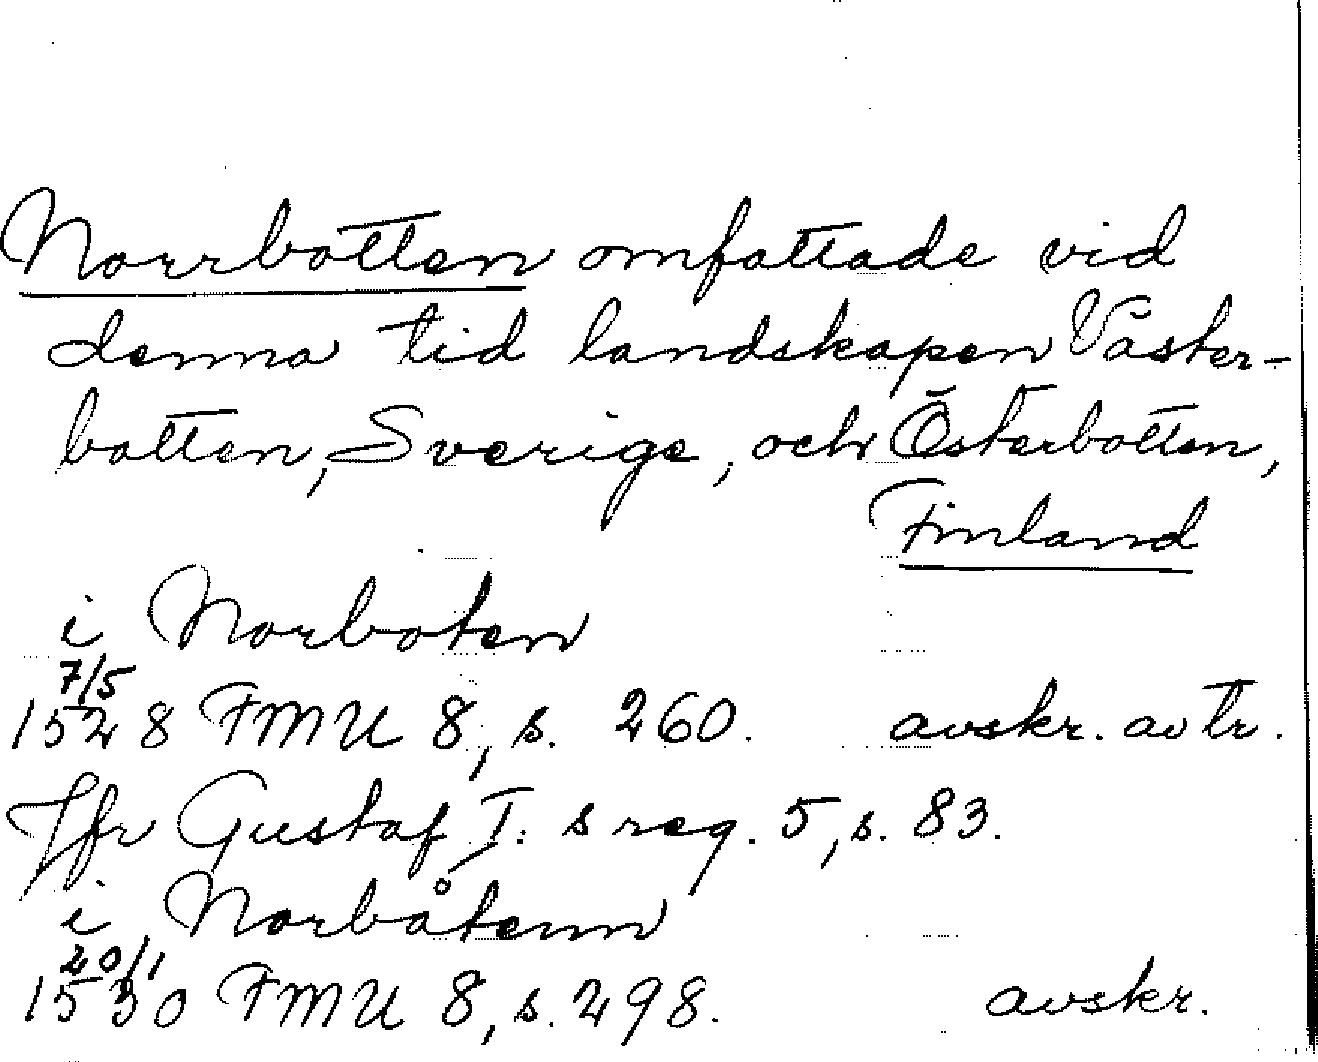 Norrbotten omfattade vid
denna tid landskapen Väster-
botten, Sverige, och Österbotten,
Finland
i Norboten
7/5
1528 FMU 8, s. 260. avskr. av tr.
Jfr Gustaf I: s reg. 5, s. 83.
i Norbåtenn
20/1
1530 FMU 8, s. 298. avskr.